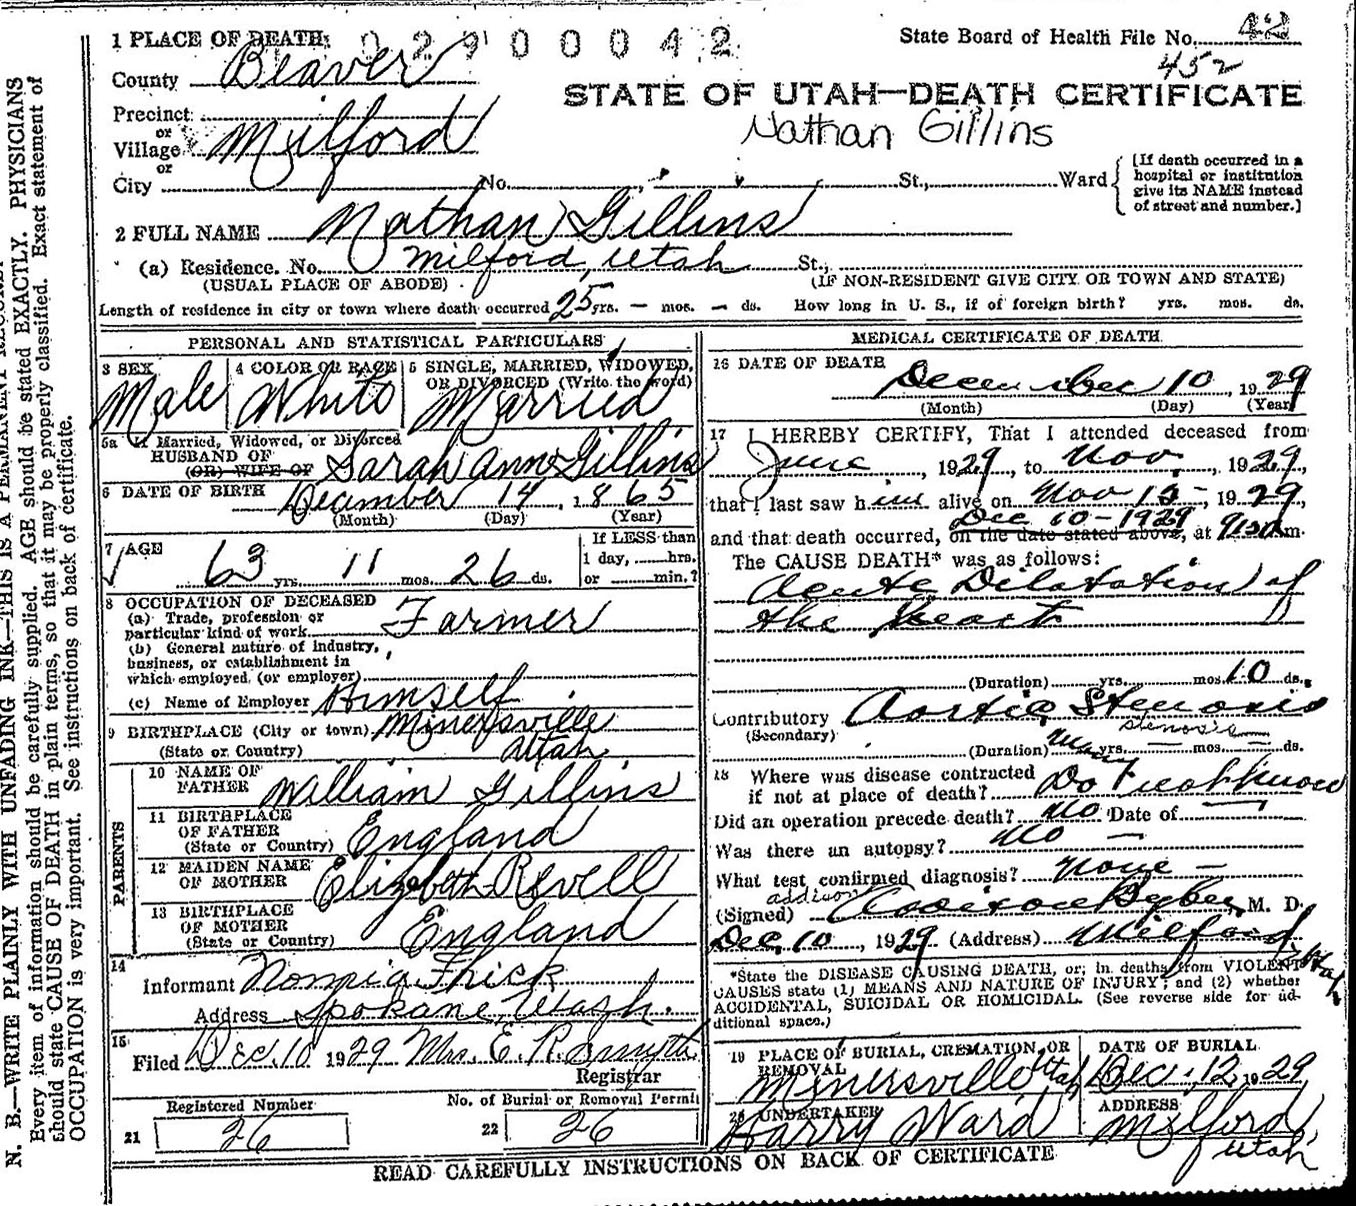 1 PLACE OF DEATH: 02900042
State Board of Health File No. 42
452
County Beaver
STATE OF UTAH—DEATH CERTIFICATE
Nathan Gillins
Precinct
or
Village Milford
or
City No. St., Ward
[If death occurred in a
hospital or institution
give its NAME instead
of street and number.]
2 FULL NAME Nathan Gillins
(a) Residence. No. Milford, Utah St.,
(USUAL PLACE OF ABODE) (IF NON-RESIDENT GIVE CITY OR TOWN AND STATE)
Length of residence in city or town where death occurred 25 yrs. — mos. — ds. How long in U. S., if of foreign birth? yrs. mos. ds.
PERSONAL AND STATISTICAL PARTICULARS
3 SEX
Male
4 COLOR OR RACE
White
5 SINGLE, MARRIED, WIDOWED,
OR DIVORCED (Write the word)
Married
5a If Married, Widowed, or Divorced
HUSBAND OF
(OR) WIFE OF Sarah Ann Gillins
6 DATE OF BIRTH December 14, 1865
(Month) (Day) (Year)
7 AGE
63 yrs. 11 mos. 26 ds.
If LESS than
1 day, hrs.
or min.?
8 OCCUPATION OF DECEASED
(a) Trade, profession or
particular kind of work Farmer
(b) General nature of industry,
business, or establishment in
which employed, (or employer)
(c) Name of Employer Himself
9 BIRTHPLACE (City or town) Minersville
(State or Country) Utah
PARENTS
10 NAME OF
FATHER William Gillins
11 BIRTHPLACE
OF FATHER
(State or Country) England
12 MAIDEN NAME
OF MOTHER Elizabeth Revell
13 BIRTHPLACE
OF MOTHER
(State or Country) England
14
Informant
Address Spokane, Wash.
15
Filed Dec. 10 1929 Mrs. E. R. Smyth
Registrar
Registered Number
21 26
No. of Burial or Removal Permit
22 26
MEDICAL CERTIFICATE OF DEATH
16 DATE OF DEATH
December 10, 1929
(Month) (Day) (Year)
17 I HEREBY CERTIFY, That I attended deceased from
June, 1929, to Nov., 1929,
that I last saw him alive on Nov 15 - 1929,
Dec 10 - 1929
and that death occurred, on the date stated above, at m.
The CAUSE DEATH* was as follows:
Acute Dilatation of
the Heart
(Duration) yrs. mos. 10 ds.
Contributory Aortic Stenosis
(Secondary) stenosis
(Duration) Many yrs. — mos. — ds.
18 Where was disease contracted
if not at place of death? Do not know
Did an operation precede death? No Date of —
Was there an autopsy? No —
What test confirmed diagnosis? None —
addison
(Signed) Addison M. D.
Dec. 10, 1929 (Address) Milford, Utah
*State the DISEASE CAUSING DEATH, or; in deaths from VIOLENT
CAUSES state (1) MEANS AND NATURE OF INJURY; and (2) whether
ACCIDENTAL, SUICIDAL OR HOMICIDAL. (See reverse side for ad-
ditional space.)
19 PLACE OF BURIAL, CREMATION, OR
REMOVAL
Minersville Utah
DATE OF BURIAL
Dec. 12, 1929
20 UNDERTAKER
Harry Ward
ADDRESS
Milford,
Utah
READ CAREFULLY INSTRUCTIONS ON BACK OF CERTIFICATE
N. B.—WRITE PLAINLY WITH UNFADING INK—THIS IS A PERMANENT RECORD
Every item of information should be carefully supplied. AGE should be stated EXACTLY. PHYSICIANS
should state CAUSE OF DEATH in plain terms, so that it may be properly classified. Exact statement of
OCCUPATION is very important. See instructions on back of certificate.